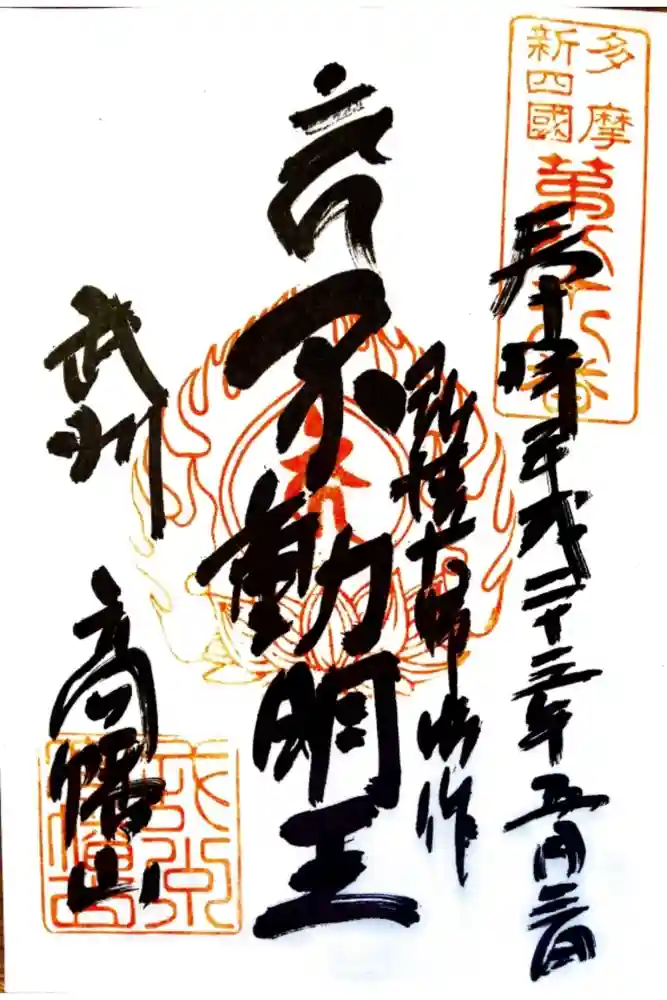 多摩
新四國
第八十八番
奉拝 平成二十三年五月三日
大師御作
不動明王
武州
高幡山